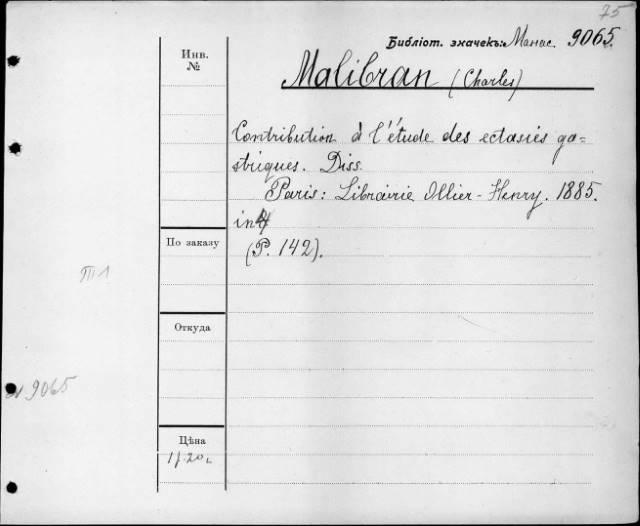 75
Библіот. значекъ: Манас. 9065.
Инв.
№
Malibran (Charles)
Contribution à l'étude des ectasies ga=
striques. Diss.
Paris: Librairie Ollier-Henry. 1885.
in 4
(P. 142).
По заказу
Откуда
9065
Цѣна
1 р. 20 к.